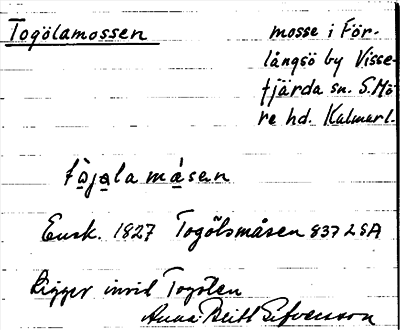 Togölamossen
mosse i För-
långsö by Visse-
fjärda sn. S. Mö
re hd. Kalmarl.
tòjala måsen
Ensk. 1827 Togölsmåsen 837 LSA
Ligger invid Togölen
Anna-Britt Elfvensson